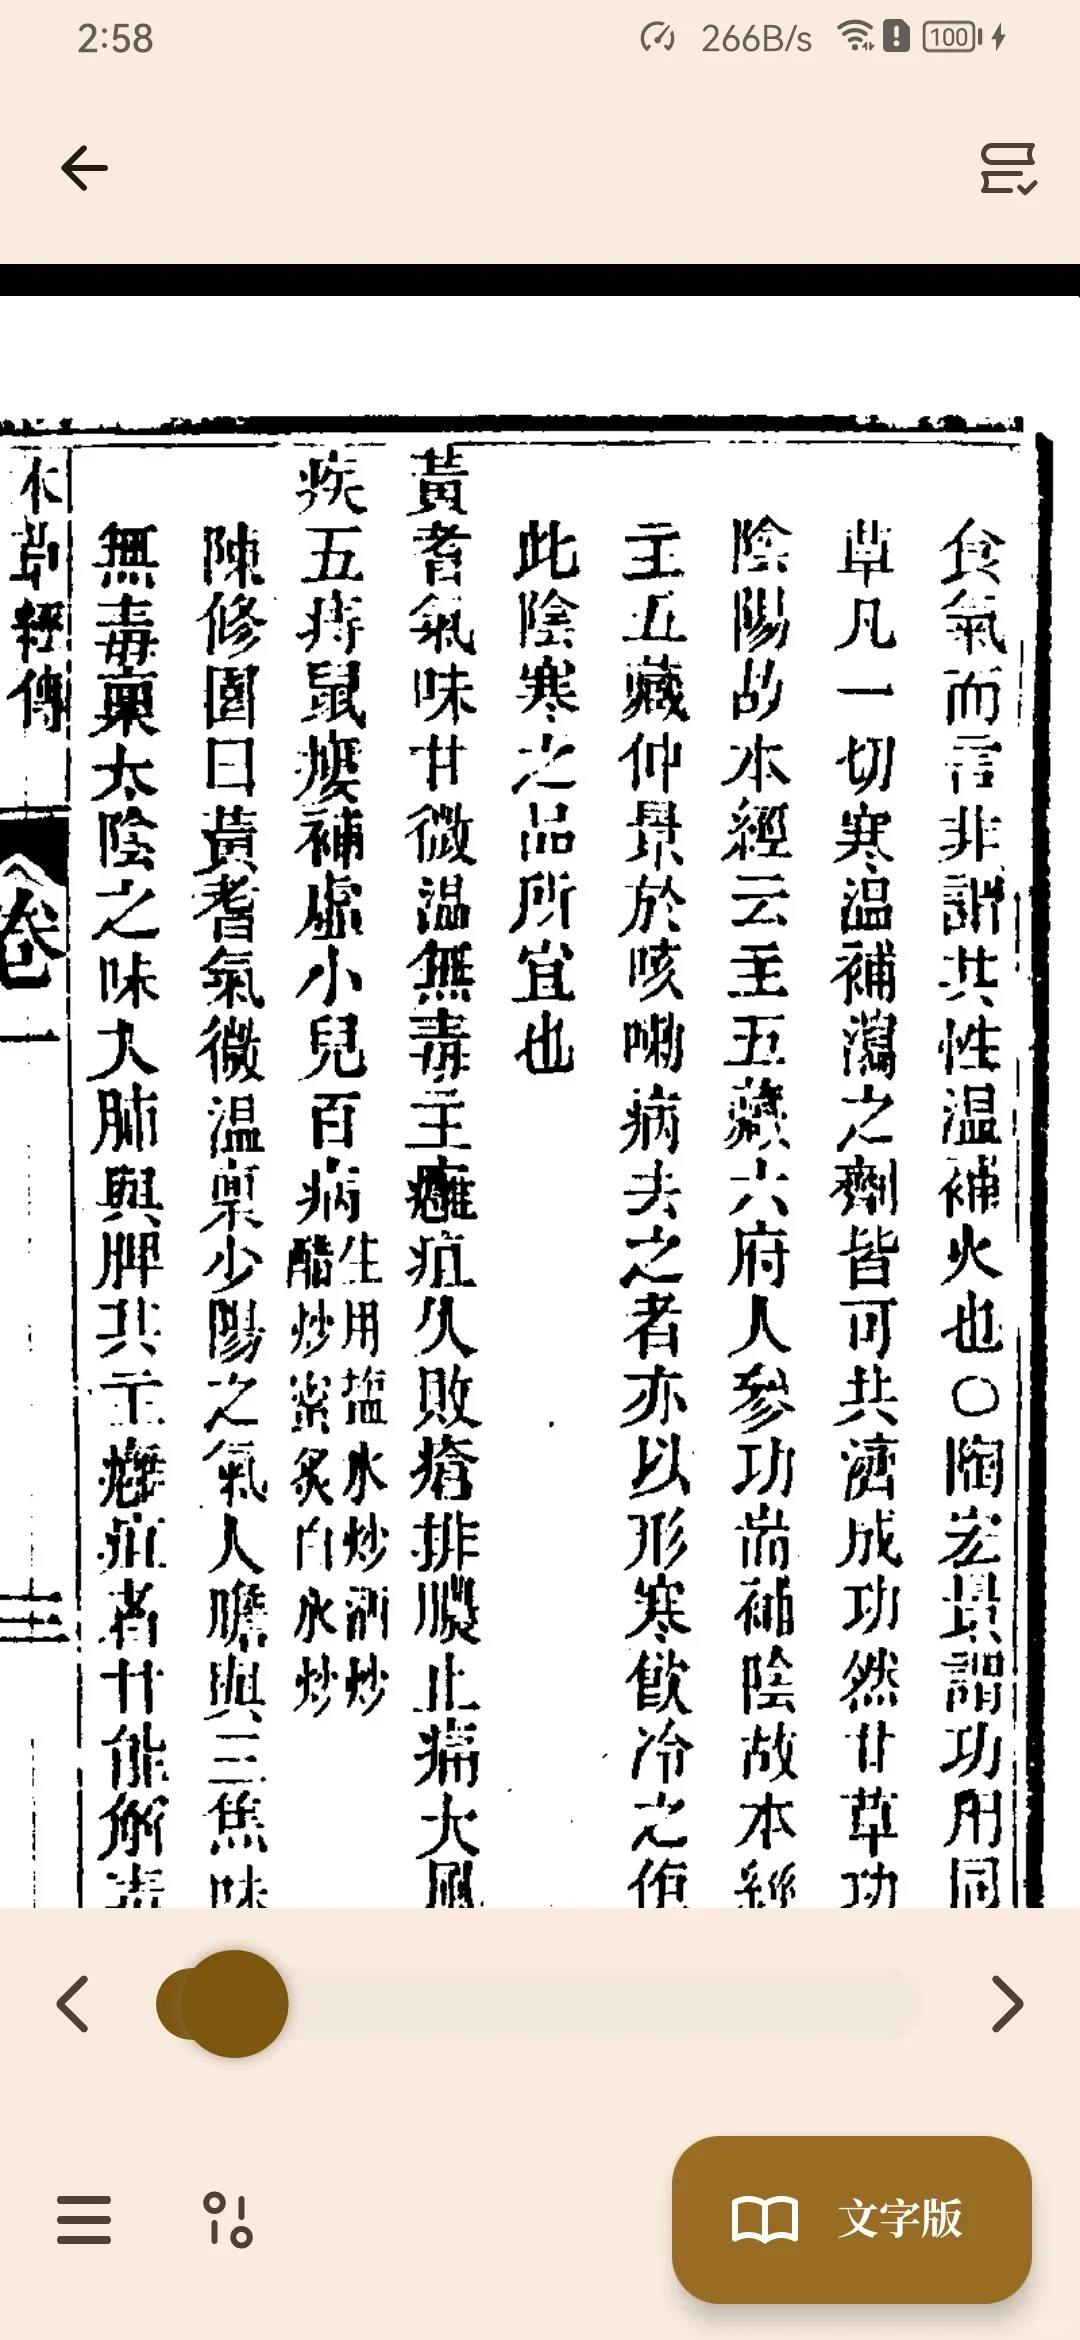 2:58
266B/s
100
食氣而言非謂其性温補火也○陶宏景謂功用同
草凡一切寒温補瀉之劑皆可共濟成功然甘草功
陰陽故本經云主五藏六府人參功耑補陰故本經
主五藏仲景於咳嗽病去之者亦以形寒飲冷之傷
此陰寒之品所宜也
黃耆氣味甘微温無毒主癰疽久敗瘡排膿止痛大風
疾五痔鼠瘻補虛小兒百病生用塩水炒酒炒
醋炒蜜炙白水炒
陳修園曰黃耆氣微温稟少陽之氣入膽與三焦味
無毒稟太陰之味入肺與脾其主癰疽者甘能解毒
本草經傳
卷一
三
文字版